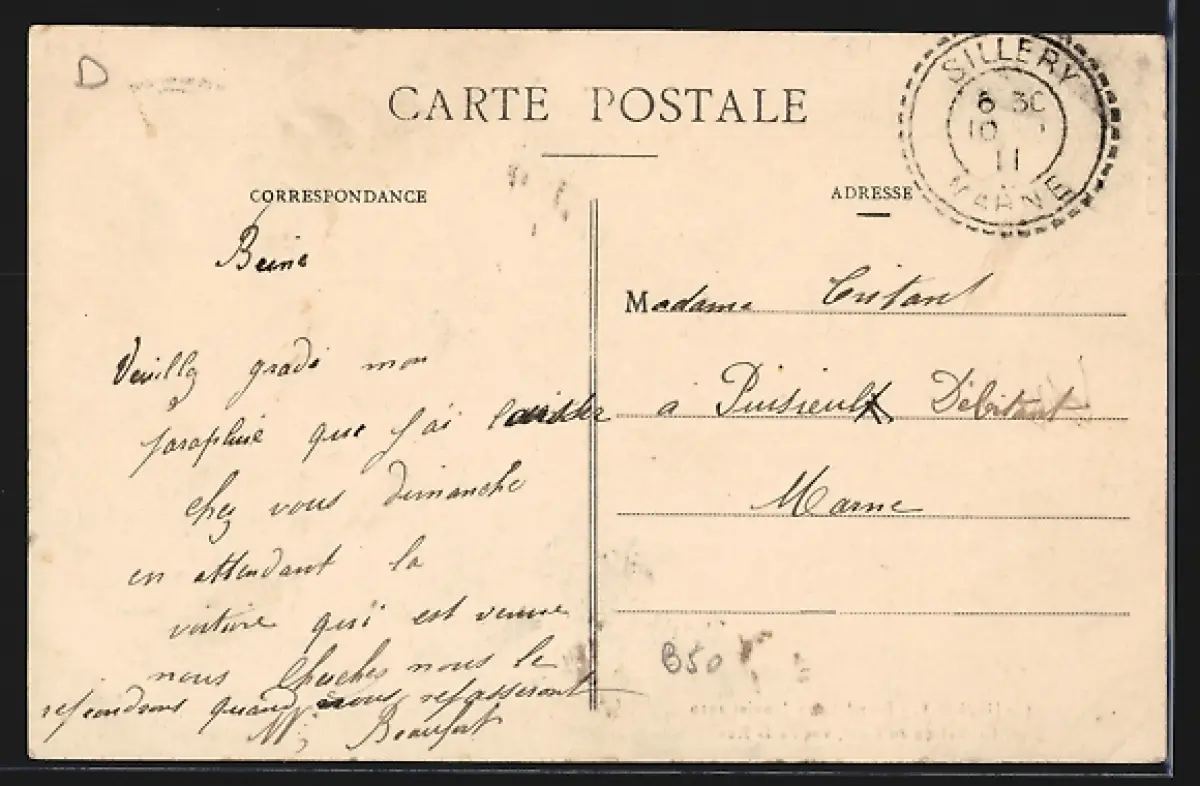 D
CARTE POSTALE
SILLERY
6 30
10
11
MARNE
CORRESPONDANCE
ADRESSE
Beine
Madame Tritant
Veuillz gradé mon
à Puisieulx Débitant
parapluie que j'ai laisser
Marne
chez vous dimanche
en attendant la
voiture qui est venue
nous cherches nous le
rependrons quand nous repasseront
M. Beaufort
B50